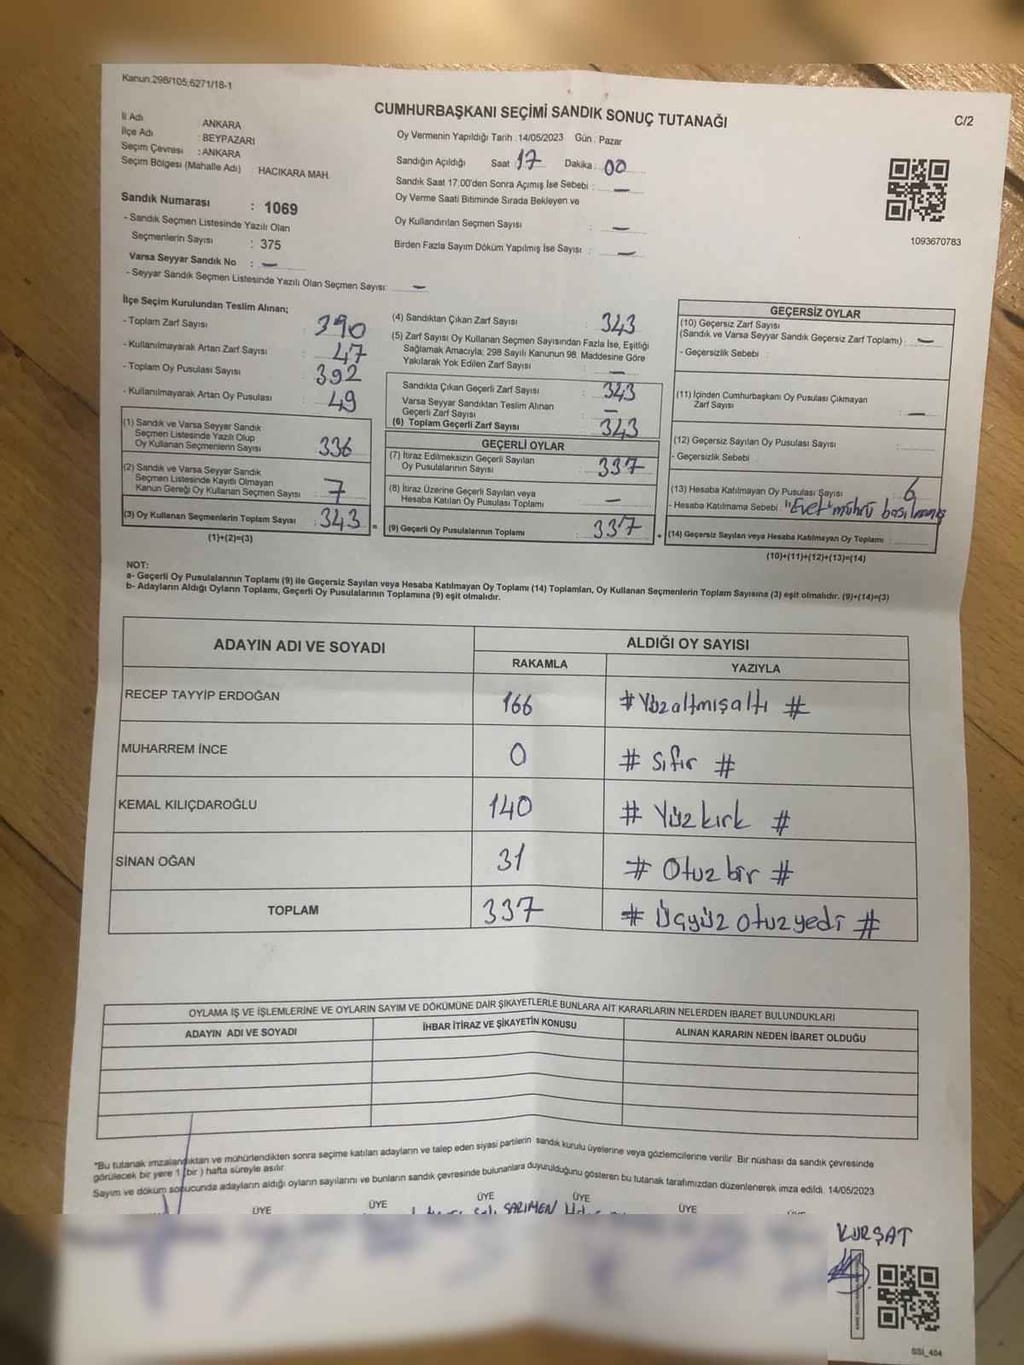 Kanun:298/105,6271/18-1
CUMHURBAŞKANI SEÇİMİ SANDIK SONUÇ TUTANAĞI
C/2
İl Adı ANKARA
İlçe Adı : BEYPAZARI
Seçim Çevresi : ANKARA
Seçim Bölgesi (Mahalle Adı) : HACIKARA MAH.
Oy Vermenin Yapıldığı Tarih : 14/05/2023 Gün : Pazar
Sandığın Açıldığı Saat : 17 Dakika : 00
Sandık Saat 17:00'den Sonra Açımış İse Sebebi : —
Oy Verme Saati Bitiminde Sırada Bekleyen ve
Oy Kullandırılan Seçmen Sayısı : —
Birden Fazla Sayım Döküm Yapılmış İse Sayısı : —
1093670783
Sandık Numarası : 1069
- Sandık Seçmen Listesinde Yazılı Olan
Seçmenlerin Sayısı : 375
Varsa Seyyar Sandık No : —
- Seyyar Sandık Seçmen Listesinde Yazılı Olan Seçmen Sayısı: —
İlçe Seçim Kurulundan Teslim Alınan;
- Toplam Zarf Sayısı : 390
- Kullanılmayarak Artan Zarf Sayısı : 47
- Toplam Oy Pusulası Sayısı : 392
- Kullanılmayarak Artan Oy Pusulası : 49
(1) Sandık ve Varsa Seyyar Sandık
Seçmen Listesinde Yazılı Olup
Oy Kullanan Seçmenlerin Sayısı 336
(2) Sandık ve Varsa Seyyar Sandık
Seçmen Listesinde Kayıtlı Olmayan
Kanun Gereği Oy Kullanan Seçmen Sayısı 7
(3) Oy Kullanan Seçmenlerin Toplam Sayısı : 343
(1)+(2)=(3)
(4) Sandıktan Çıkan Zarf Sayısı : 343
(5) Zarf Sayısı Oy Kullanan Seçmen Sayısından Fazla İse, Eşitliği
Sağlamak Amacıyla; 298 Sayılı Kanunun 98. Maddesine Göre
Yakılarak Yok Edilen Zarf Sayısı : —
Sandıkta Çıkan Geçerli Zarf Sayısı : 343
Varsa Seyyar Sandıktan Teslim Alınan
Geçerli Zarf Sayısı : —
(6) Toplam Geçerli Zarf Sayısı : 343
GEÇERLİ OYLAR
(7) İtiraz Edilmeksizin Geçerli Sayılan
Oy Pusulalarının Sayısı : 337
(8) İtiraz Üzerine Geçerli Sayılan veya
Hesaba Katılan Oy Pusulası Toplamı : —
(9) Geçerli Oy Pusulalarının Toplamı : 337
GEÇERSİZ OYLAR
(10) Geçersiz Zarf Sayısı
(Sandık ve Varsa Seyyar Sandık Geçersiz Zarf Toplamı) : —
- Geçersizlik Sebebi :
(11) İçinden Cumhurbaşkanı Oy Pusulası Çıkmayan
Zarf Sayısı : —
(12) Geçersiz Sayılan Oy Pusulası Sayısı :
- Geçersizlik Sebebi :
(13) Hesaba Katılmayan Oy Pusulası Sayısı : 6
- Hesaba Katılmama Sebebi : "Evet" mührü basılmamış
(14) Geçersiz Sayılan veya Hesaba Katılmayan Oy Toplamı :
(10)+(11)+(12)+(13)=(14)
NOT:
a- Geçerli Oy Pusulalarının Toplamı (9) ile Geçersiz Sayılan veya Hesaba Katılmayan Oy Toplamı (14) Toplamları, Oy Kullanan Seçmenlerin Toplam Sayısına (3) eşit olmalıdır. (9)+(14)=(3)
b- Adayların Aldığı Oyların Toplamı, Geçerli Oy Pusulalarının Toplamına (9) eşit olmalıdır.
ADAYIN ADI VE SOYADI ALDIĞI OY SAYISI
RAKAMLA YAZIYLA
RECEP TAYYİP ERDOĞAN 166 # Yüzaltmışaltı #
MUHARREM İNCE 0 # Sıfır #
KEMAL KILIÇDAROĞLU 140 # Yüzkırk #
SİNAN OĞAN 31 # Otuzbir #
TOPLAM 337 # Üçyüzotuzyedi #
OYLAMA İŞ VE İŞLEMLERİNE VE OYLARIN SAYIM VE DÖKÜMÜNE DAİR ŞİKAYETLERLE BUNLARA AİT KARARLARIN NELERDEN İBARET BULUNDUKLARI
ADAYIN ADI VE SOYADI İHBAR İTİRAZ VE ŞİKAYETİN KONUSU ALINAN KARARIN NEDEN İBARET OLDUĞU
*Bu tutanak imzalandıktan ve mühürlendikten sonra seçime katılan adayların ve talep eden siyasi partilerin sandık kurulu üyelerine veya gözlemcilerine verilir. Bir nüshası da sandık çevresinde
görülecek bir yere 1 (bir) hafta süreyle asılır.
Sayım ve döküm sonucunda adayların aldığı oyların sayılarını ve bunların sandık çevresinde bulunanlara duyurulduğunu gösteren bu tutanak tarafımızdan düzenlenerek imza edildi. 14/05/2023
ÜYE ÜYE ÜYE ÜYE ÜYE
SARIMEN
KÜRŞAT
SSI_404